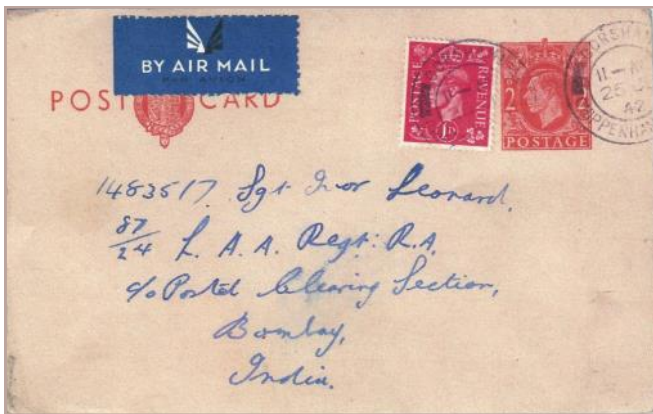 BY AIR MAIL
PAR AVION
POST CARD
POSTAGE REVENUE
1D
2
POSTAGE
CORSHAM
11-
25
47
CHIPPENHAM
1483517 Sgt Ivor Leonard,
87/24 L. A. A. Regt: R.A.
c/o Postal Clearing Section,
Bombay,
India.